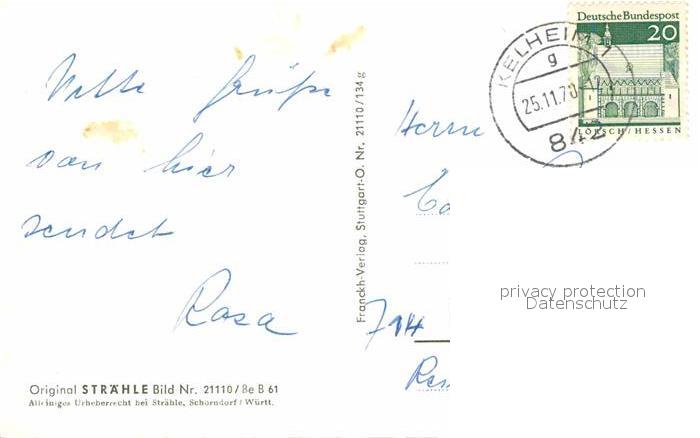 Nette Grüße
von hier
sendet
Rosa
Original STRÄHLE Bild Nr. 21110/8e B 61
Alleiniges Urheberrecht bei Strähle, Schorndorf / Württ.
Franckh-Verlag, Stuttgart-O. Nr. 21110/134 g
KELHEIM 1
g
25.11.70
842
Deutsche Bundespost
20
LORSCH/HESSEN
Herrn
714
privacy protection
Datenschutz